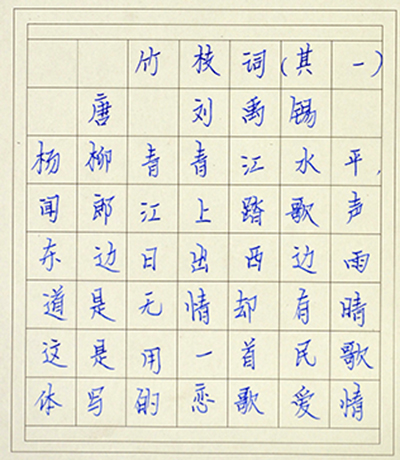 竹枝词(其一)
唐 刘禹锡
杨柳青青江水平,
闻郎江上踏歌声
东边日出西边雨
道是无情却有晴
这是用一首民歌
体写的恋歌爱情